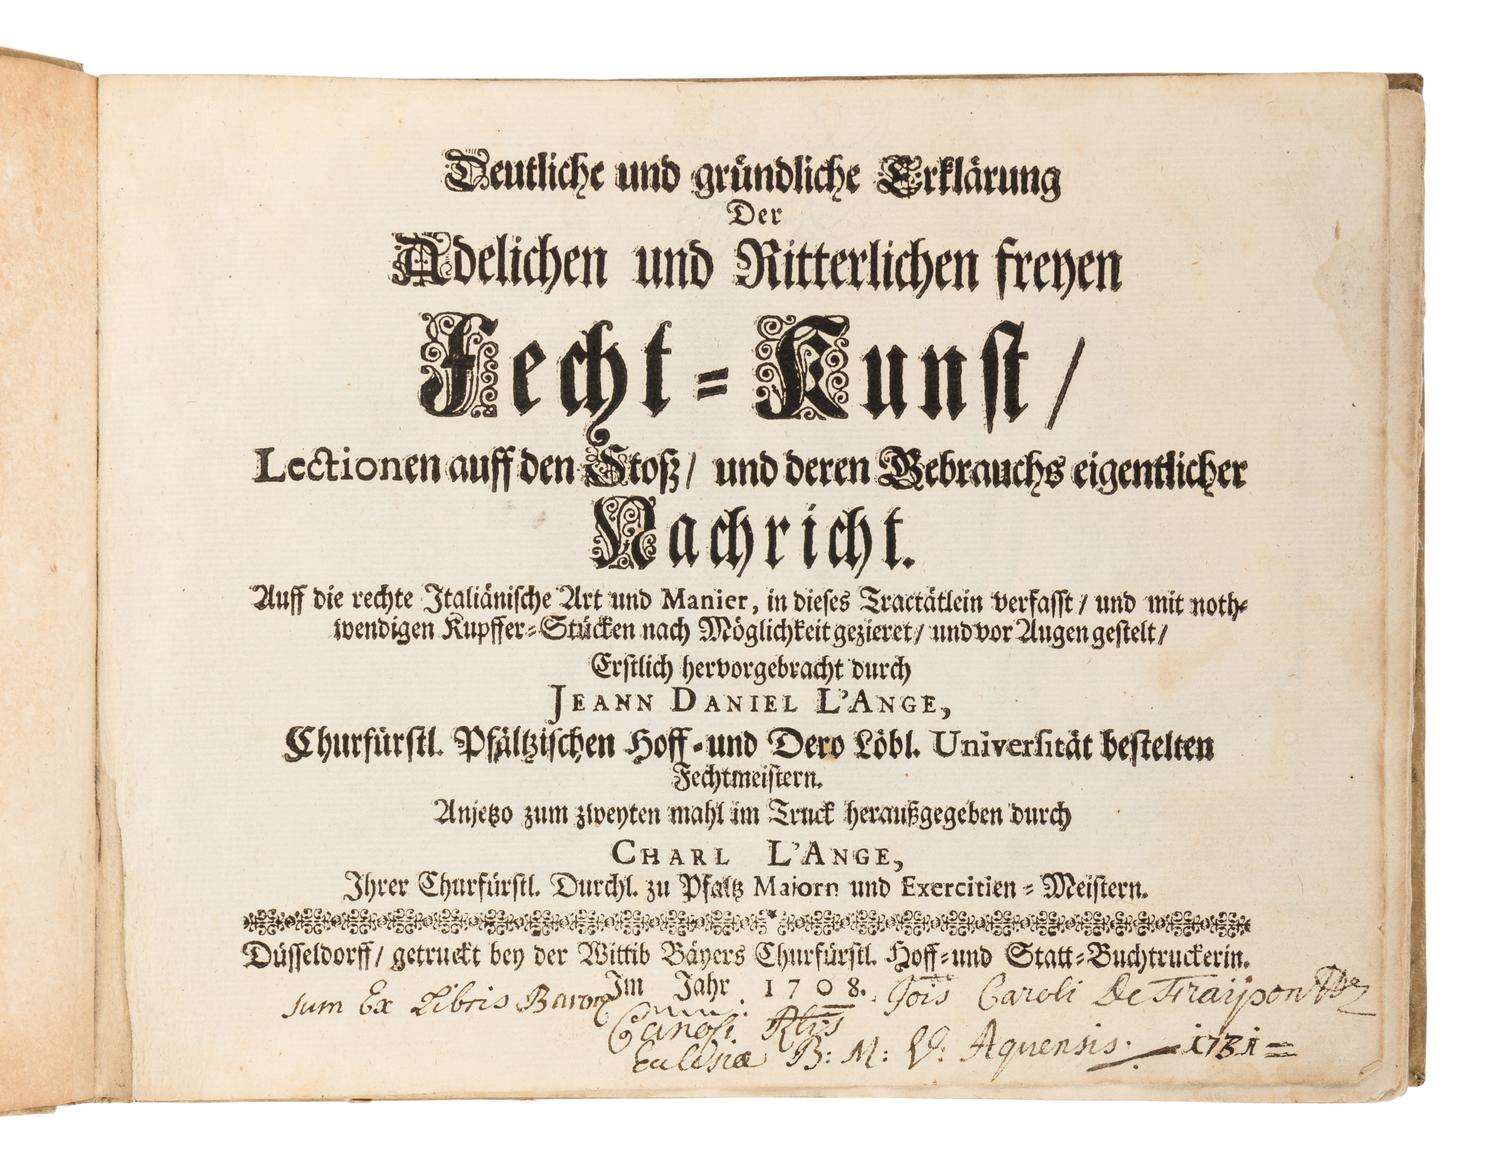 Deutliche und gründliche Erklärung
Der
Adelichen und Ritterlichen freyen
Fecht-Kunst/
Lectionen auff den Stoß/ und deren Gebrauchs eigentlicher
Nachricht.
Auff die rechte Italiänische Art und Manier, in dieses Tractätlein verfasst/ und mit noth-
wendigen Kupffer-Stücken nach Möglichkeit gezieret/ und vor Augen gestelt/
Erstlich hervorgebracht durch
JEANN DANIEL L'ANGE,
Churfürstl. Pfältzischen Hoff-und Dero Löbl. Universität bestelten
Fechtmeistern.
Anjetzo zum zweyten mahl im Truck heraußgegeben durch
CHARL L'ANGE,
Ihrer Churfürstl. Durchl. zu Pfaltz Majorn und Exercitien-Meistern.
Düsseldorff/ getruckt bey der Wittib Bäyers Churfürstl. Hoff-und Statt-Buchtruckerin.
Im Jahr 1708.
sum Ex Libris Caroli De
Ecclesiæ B: M: V: Aquensis. 1731